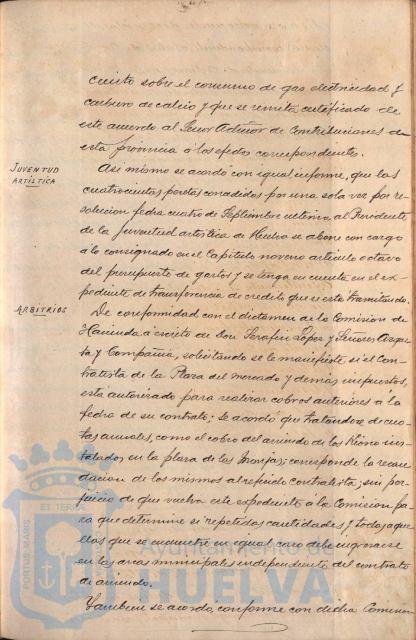 cuesto sobre el consumo de gas electricidad y
carburo de calcio y que se remita certificado de
este acuerdo al Señor Admor de Contribuciones de
esta provincia a los efectos correspondientes.
JUVENTUD
ARTÍSTICA
Asi mismo se acordó con igual informe, que las
cuatrocientas pesetas concedidas por una sola vez por re-
solucion fecha cuatro de Septiembre ultimo al Presidente
de la Juventud artística de Huelva se abone con cargo
a lo consignado en el Capitulo noveno articulo octavo
del presupuesto de gastos y se tenga en cuenta en el ex-
pediente de transferencia de credito que se está tramitando.
ARBITRIOS
De conformidad con el dictamen de la Comision de
Hacienda a escrito de Don Serafin Lopez y Señores
y Compañia, solicitando se le manifieste si el Con-
tratista de la Plaza del mercado y demás impuestos,
está autorizado para realizar cobros anteriores a la
fecha de su contrato; Se acordó que tratandose de cuo-
tas anuales, como el cobro del arriendo de los Kioscos ins-
talados en la plaza de las Monjas; corresponde la recau-
dacion de los mismos al referido contratista; sin per-
juicio de que vuelva este expediente a la Comision pa-
ra que determine si repetidas cantidades y todas aque-
llas que se encuentren en igual caso debe ingresarse
en las arcas municipales independiente del contrato
de arriendo.
Tambien se acordó, conforme con dicha Comision
PORTUS MARIS
ET TERRAE
Ayuntamiento de
HUELVA